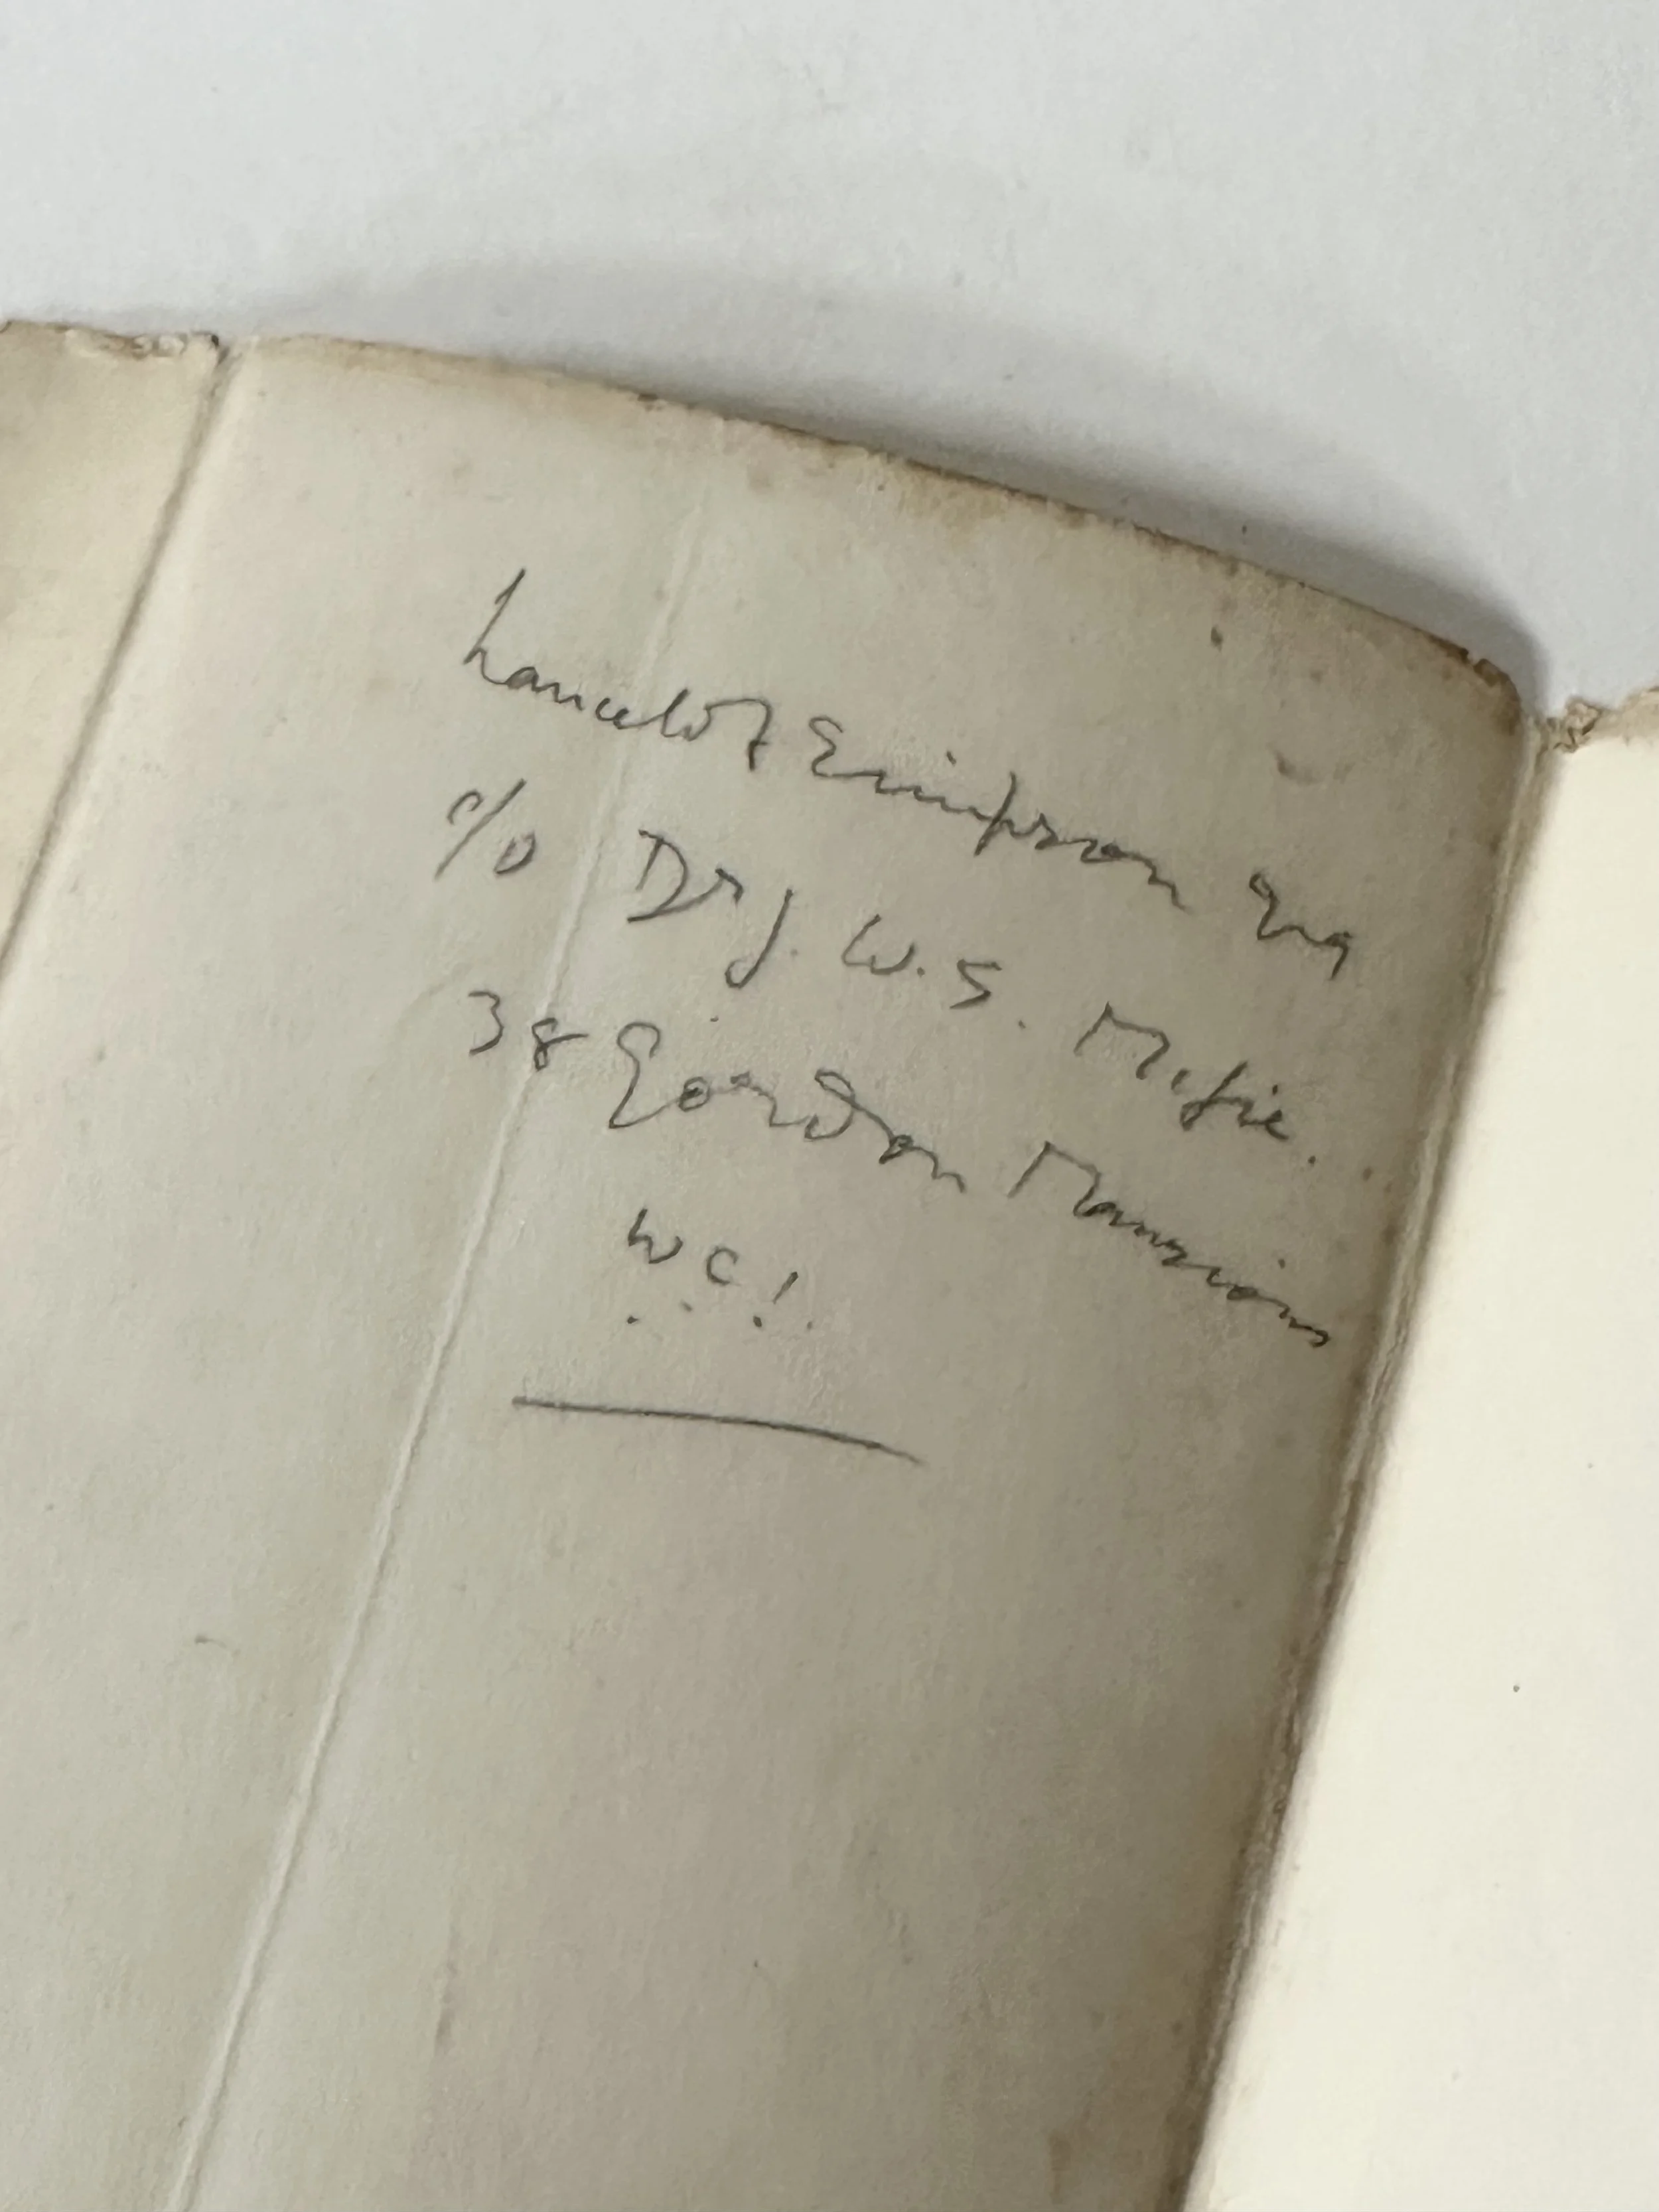 Lancelot Simpson Esq
c/o Dr J. W. S. McFie.
38 Gordon Mansions
W C 1.